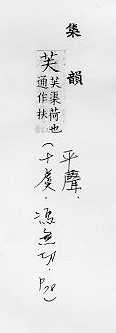 集韻
芙
芙渠荷也
通作扶
平聲．
(十虞．馮無切．P.78)